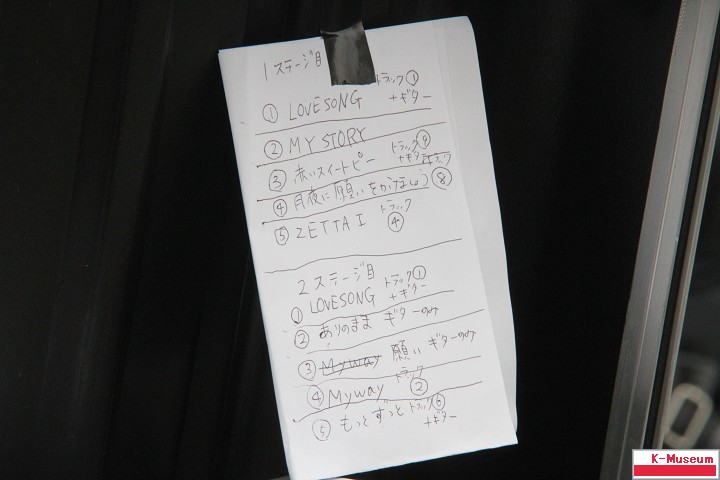 1ステージ目
① LOVESONG トラック①
+ギター
② MY STORY
③ 赤いスイートピー トラック⑨
+ギター
④ 月夜に願いをかけましょう トラック⑧
⑤ ZETTAI トラック④
2ステージ目
① LOVESONG トラック①
+ギター
② ありのまま ギターのみ
③ Myway 願い ギターのみ
④ Myway トラック②
⑤ もっとずっと トラック⑥
+ギター
K-Museum